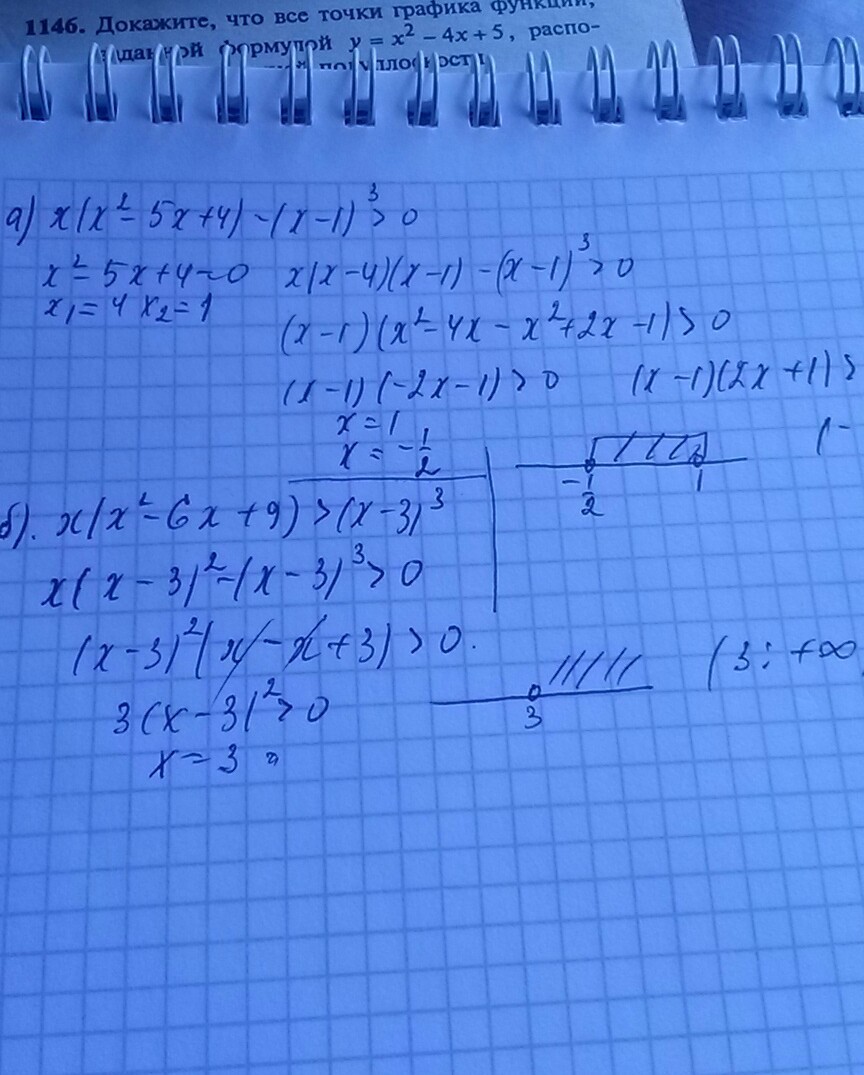 1146. Докажите, что все точки графика функции,
заданной формулой y = x² − 4x + 5, распо-
а) x(x² − 5x + 4) − (x − 1)³ > 0
x² − 5x + 4 = 0 x(x − 4)(x − 1) − (x − 1)³ > 0
x₁ = 4 x₂ = 1
(x − 1)(x² − 4x − x² + 2x − 1) > 0
(x − 1)(−2x − 1) > 0 (x − 1)(2x + 1) >
x = 1
x = −1/2
−1/2 1 (−
б). x(x² − 6x + 9) > (x − 3)³
x(x − 3)² − (x − 3)³ > 0
(x − 3)²(x − x + 3) > 0.
3(x − 3)² > 0
x = 3
3
(3; +∞